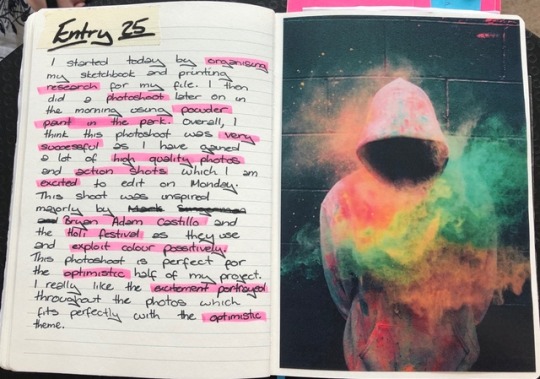 Entry 25
I started today by organising
my sketchbook and printing
research for my file. I then
did a photoshoot later on in
the morning using powder
paint in the park. Overall, I
think this photoshoot was very
successful as I have gained
a lot of high quality photos
and action shots which I am
excited to edit on Monday.
This shoot was inspired
majorly by
Bryan Adam Castillo and
the Holi festival as they use
and exploit colour possitively.
This photoshoot is perfect for
the optimistic half of my project.
I really like the excitement portrayed
throughout the photos which
fits perfectly with the optimistic
theme.